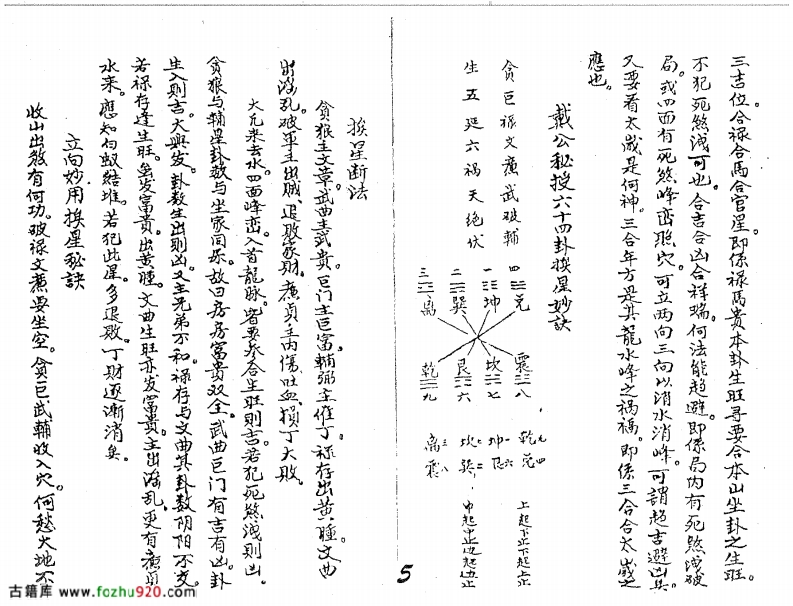 三吉位。合禄合馬合官星。即係禄馬贵本卦生旺寻要合本山坐卦之生旺。
不犯死煞洩可也。合吉合凶合祥瑞。何法能趋避。即係局内有死煞洩破
局。或四面有死煞峰峦照穴。可立两向三向以消水消峰。可謂趋吉避凶矣。
又要看太歲是何神。三合年方是其龍水峰之祸福。即係三合合太歲之
應也。
戴公秘授六十四卦挨星妙訣
贪巨禄文廉武破輔
生五延六祸天绝伏
四 兑
一 坤
二 巽
三 离
震 八
坎 七
艮 六
乾 九
乾九 兑四
坤一 艮六
坎七 巽二
离三 震八
上起下止下起上止
中起中止边起边止
5
挨星断法
贪狼主文章。武曲主武贵。巨门主巨富。輔弼主催丁。禄存出黄腫。文曲
出淫乱。破軍主出贼、退败家财。廉貞主内傷吐血、损丁大败。
大凡来去水四面峰峦入首龍脉。皆要参合生旺则吉。若犯死煞洩则凶。
贪狼与輔星卦数与坐家同乐。故曰房房富贵双全。武曲巨门有吉有凶。卦
生入则吉。大興发。卦数生出则凶。又主兄弟不和。禄存与文曲其卦数阴阳不交。
若禄存逢生旺。虽发富贵。出黄腫。文曲生旺亦发富贵。主出淫乱。更有廉貞
水来。應知白蚁结堆。若犯此星。多退败。丁财逐渐消矣。
立向妙用挨星秘訣
收山出煞有何功。破禄文廉要坐空。贪巨武輔收入穴。何愁大地不
古籍库 www.fozhu920.com